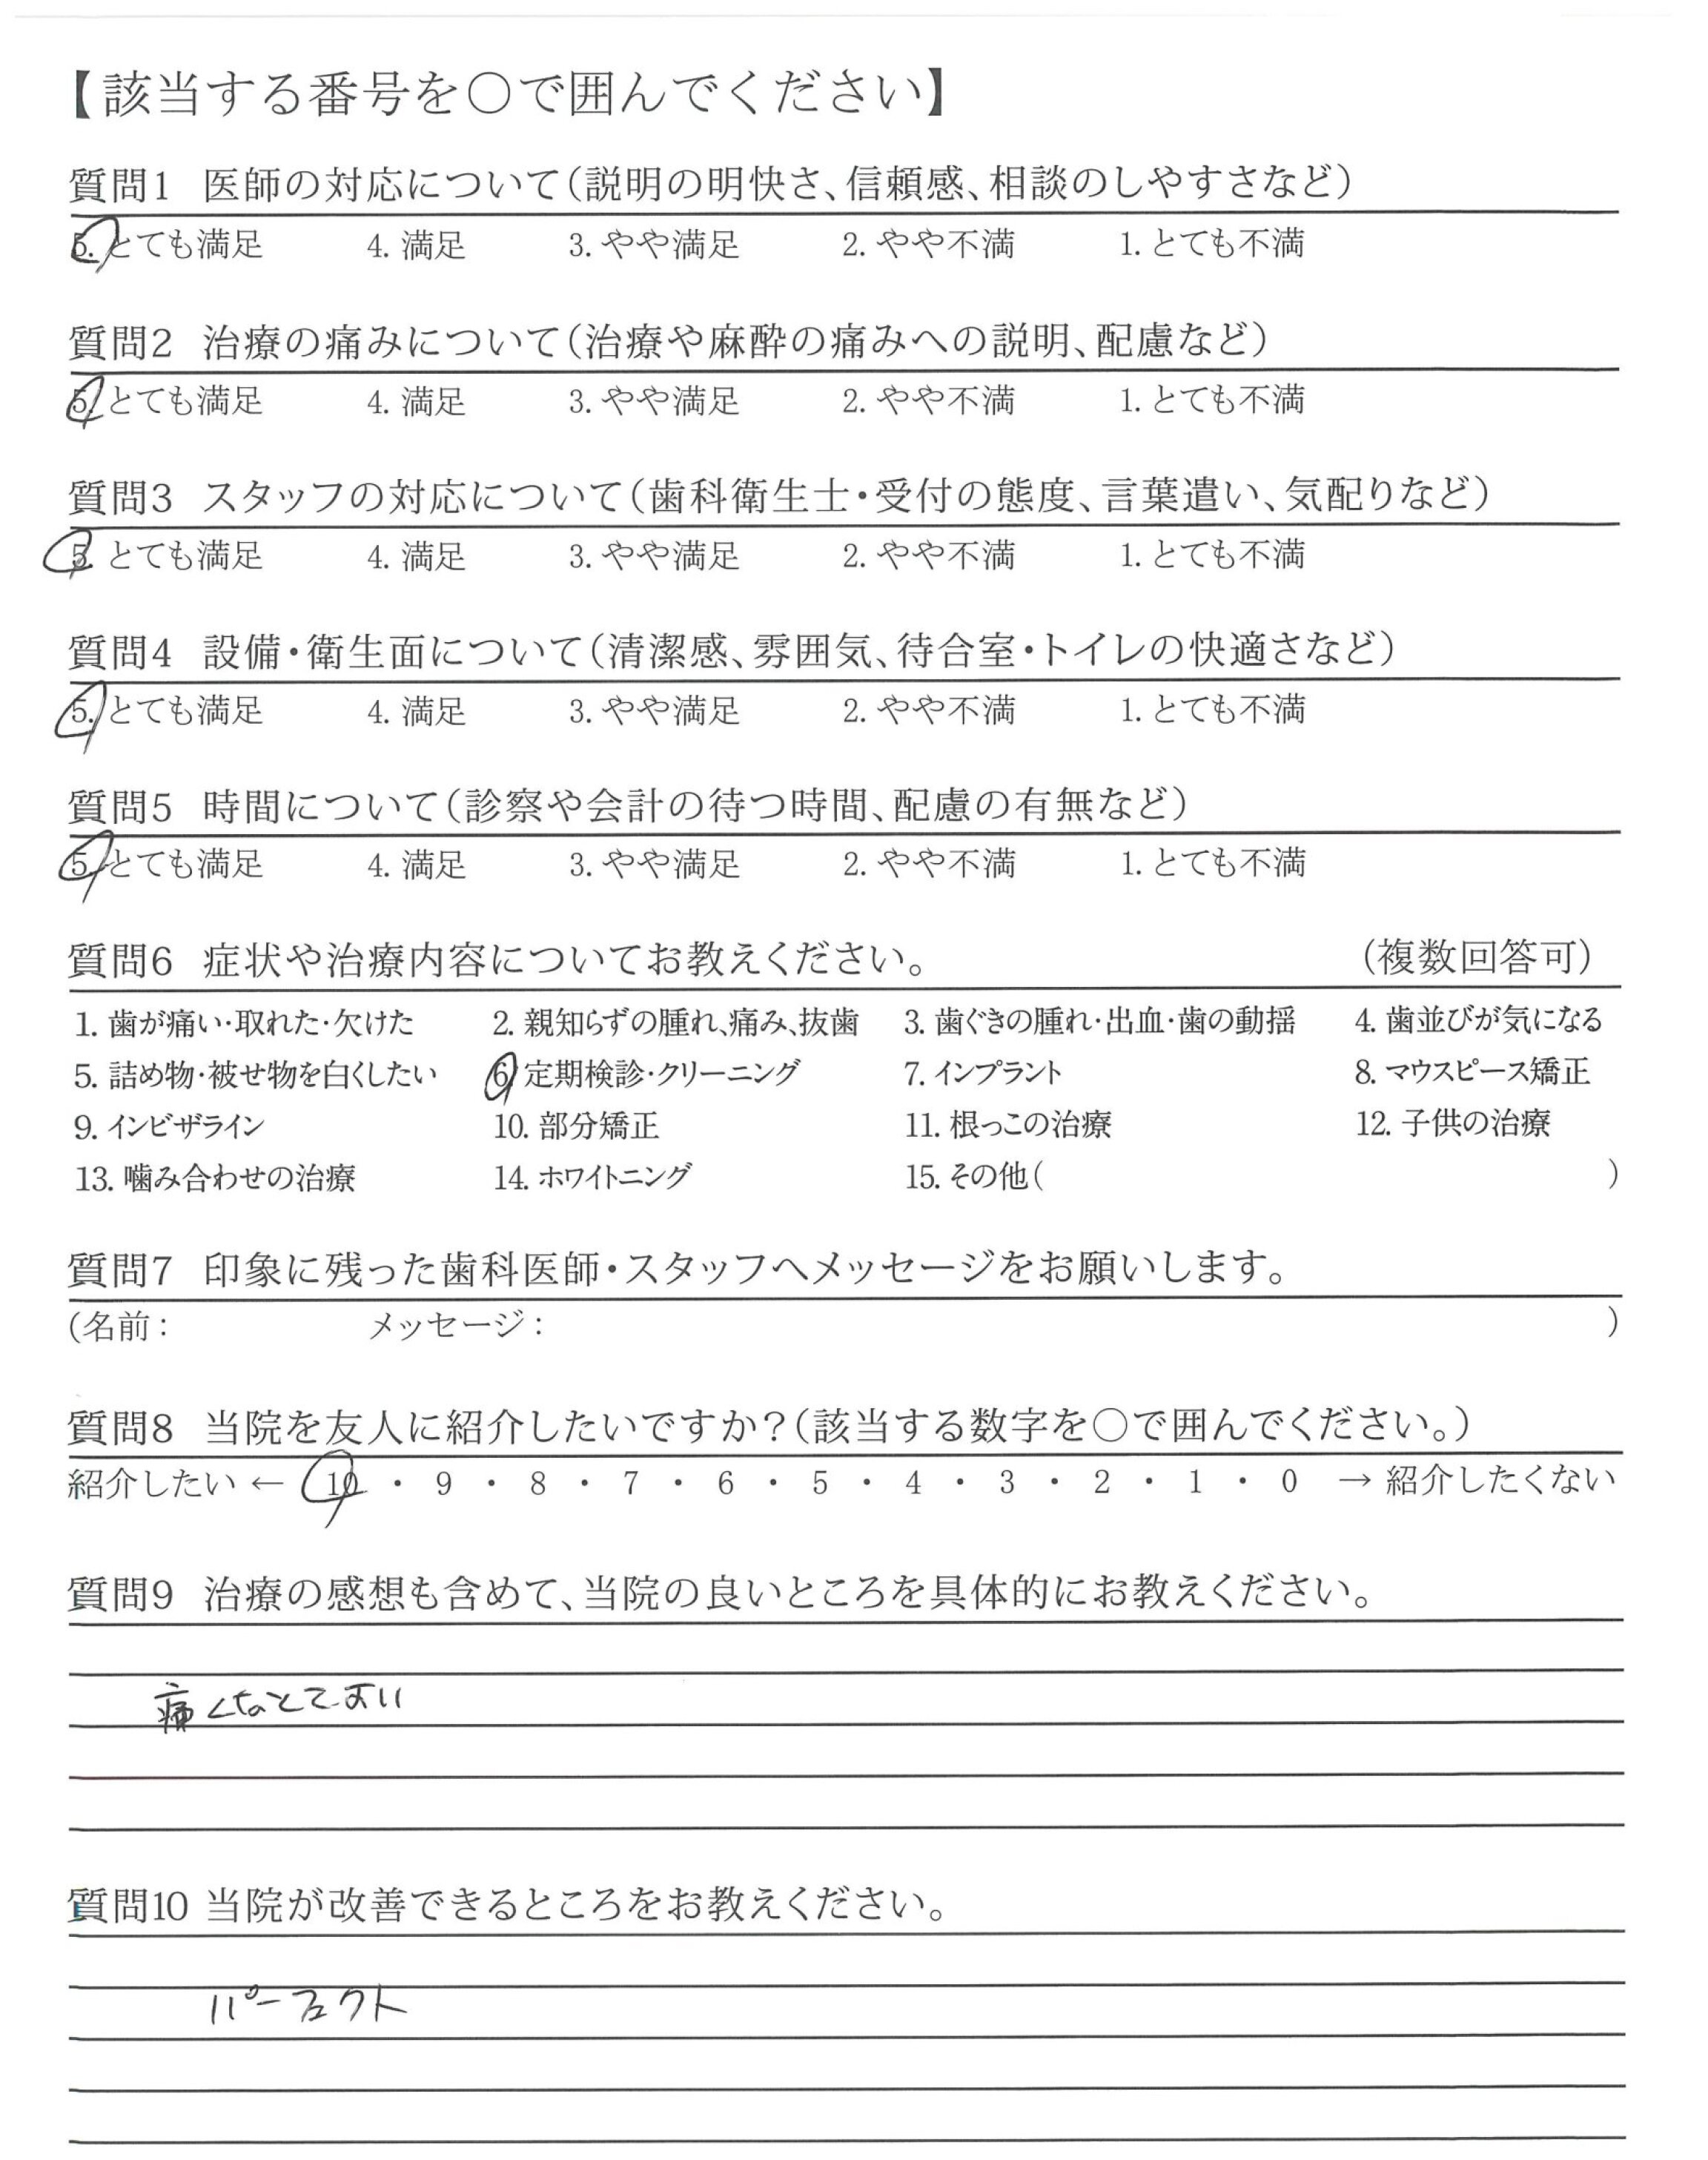 【該当する番号を○で囲んでください】
質問1 医師の対応について(説明の明快さ、信頼感、相談のしやすさなど)
5. とても満足 4. 満足 3. やや満足 2. やや不満 1. とても不満
質問2 治療の痛みについて(治療や麻酔の痛みへの説明、配慮など)
5. とても満足 4. 満足 3. やや満足 2. やや不満 1. とても不満
質問3 スタッフの対応について(歯科衛生士・受付の態度、言葉遣い、気配りなど)
5. とても満足 4. 満足 3. やや満足 2. やや不満 1. とても不満
質問4 設備・衛生面について(清潔感、雰囲気、待合室・トイレの快適さなど)
5. とても満足 4. 満足 3. やや満足 2. やや不満 1. とても不満
質問5 時間について(診察や会計の待つ時間、配慮の有無など)
5. とても満足 4. 満足 3. やや満足 2. やや不満 1. とても不満
質問6 症状や治療内容についてお教えください。 (複数回答可)
1. 歯が痛い・取れた・欠けた 2. 親知らずの腫れ、痛み、抜歯 3. 歯ぐきの腫れ・出血・歯の動揺 4. 歯並びが気になる
5. 詰め物・被せ物を白くしたい 6. 定期検診・クリーニング 7. インプラント 8. マウスピース矯正
9. インビザライン 10. 部分矯正 11. 根っこの治療 12. 子供の治療
13. 噛み合わせの治療 14. ホワイトニング 15. その他( )
質問7 印象に残った歯科医師・スタッフへメッセージをお願いします。
(名前: メッセージ: )
質問8 当院を友人に紹介したいですか?(該当する数字を○で囲んでください。)
紹介したい ← 10 ・ 9 ・ 8 ・ 7 ・ 6 ・ 5 ・ 4 ・ 3 ・ 2 ・ 1 ・ 0 → 紹介したくない
質問9 治療の感想も含めて、当院の良いところを具体的にお教えください。
痛くなくてよい
質問10 当院が改善できるところをお教えください。
パーフェクト